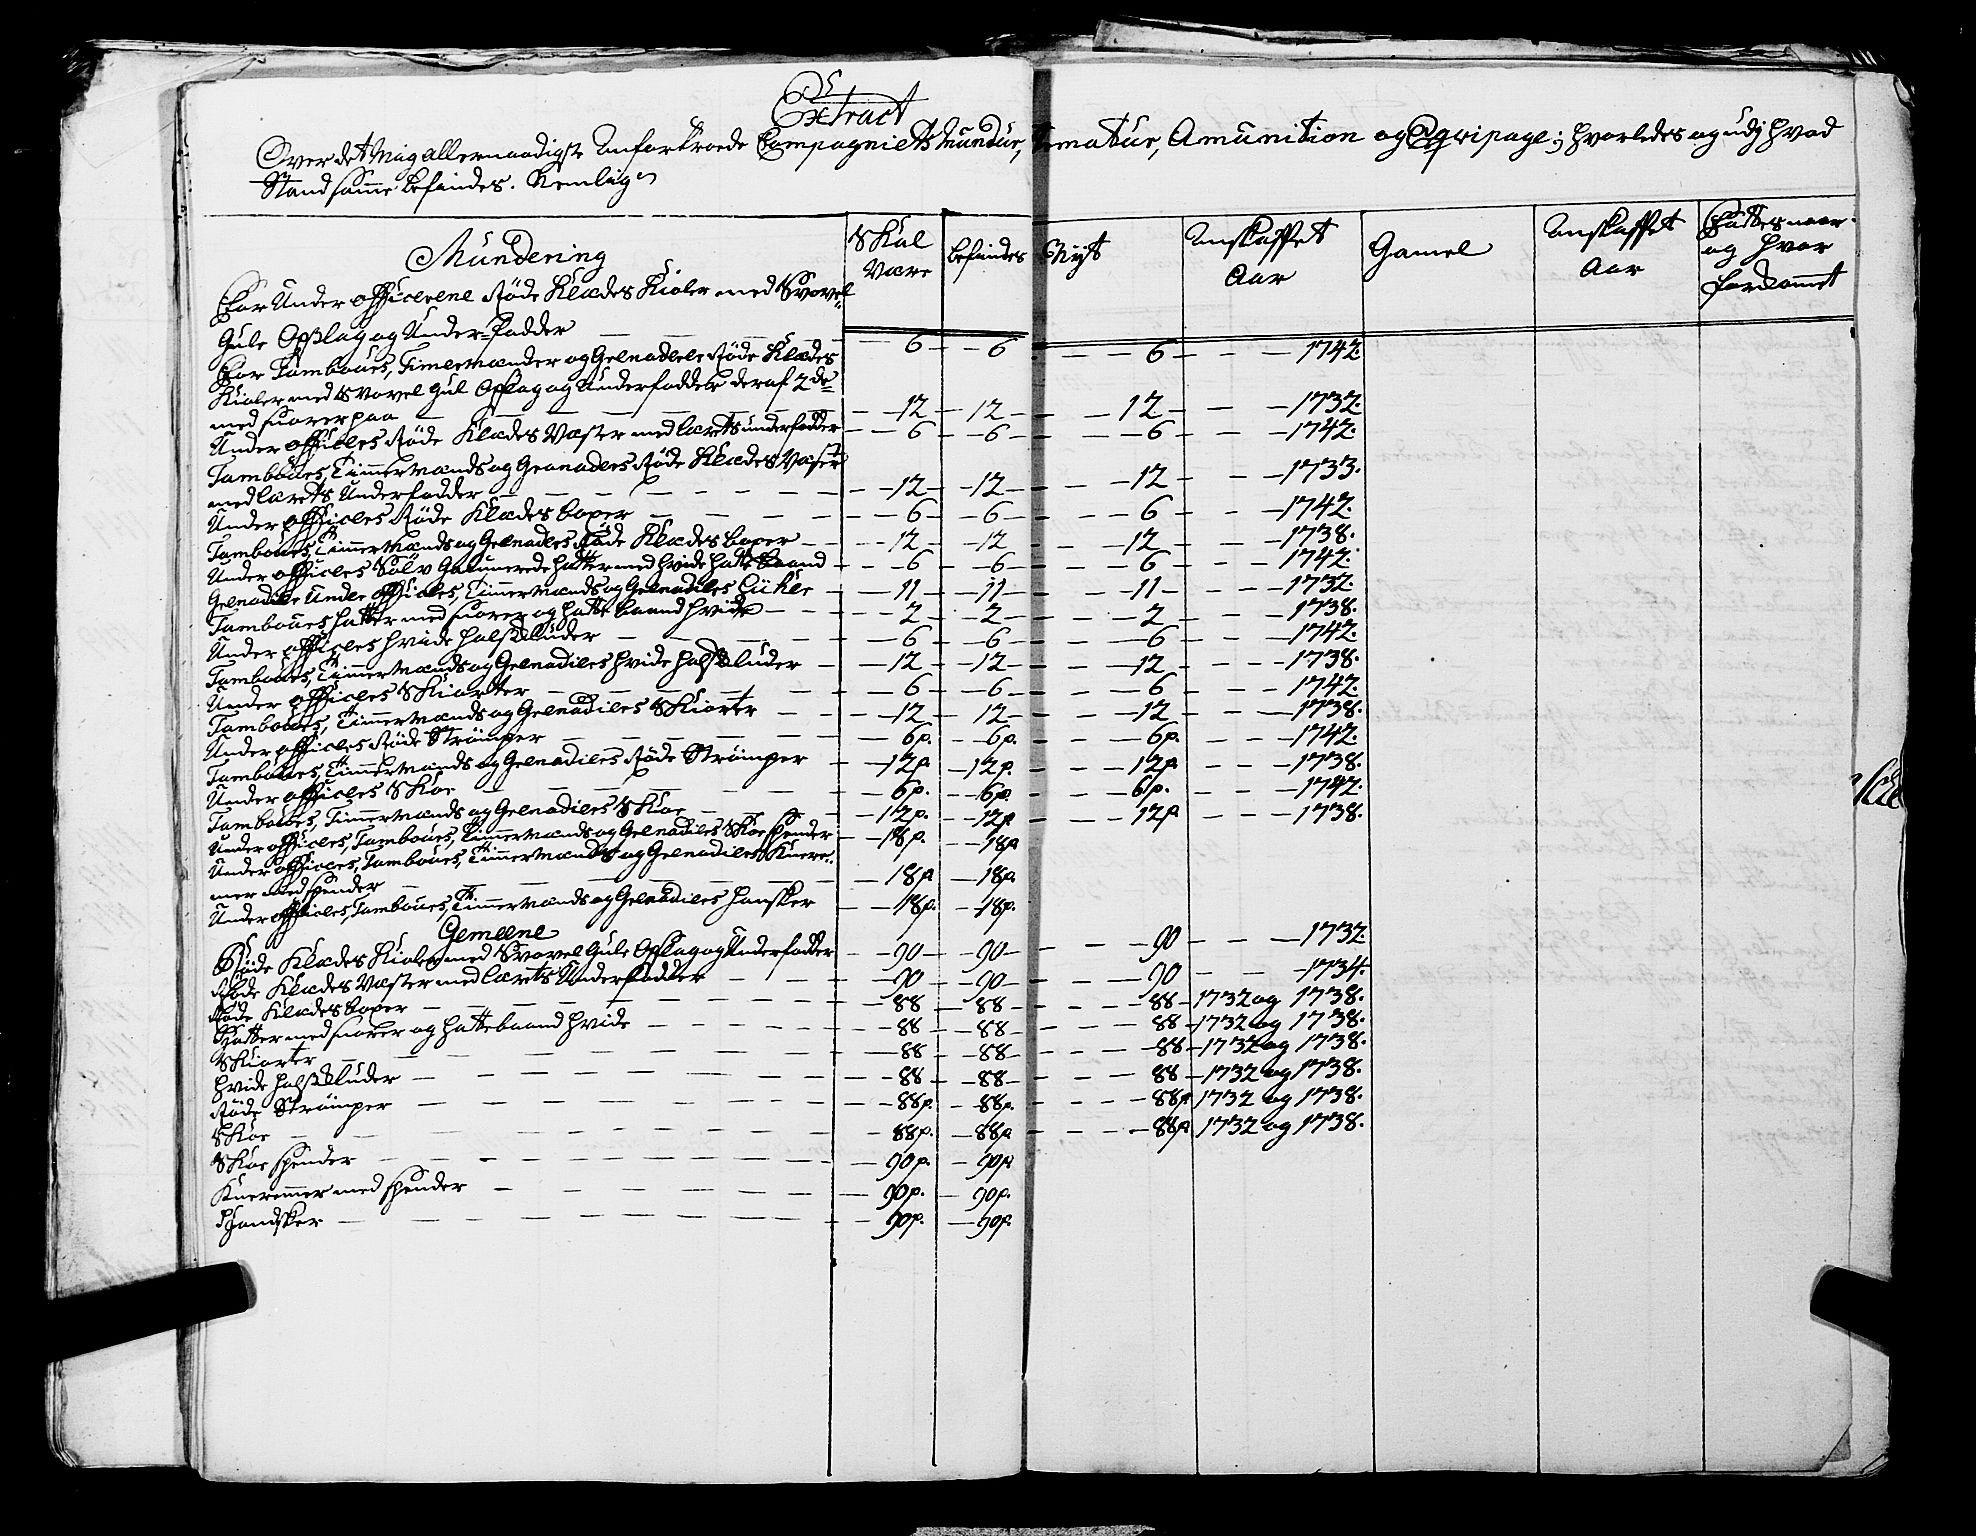 Extract
Over det Mig allernaadigst Anfortroede Compagniets Mundur, Armatur, Amunition og Eqvipage; hvorledes og udj hvad
Stand samme befindes. Nemlig
Mundering | Skul Være | befindes | Nyt | Anskaffet Aar | Gamel | Anskaffet Aar | Fattes naar og hvor forkommet
For Under officerene Røde Klædes Kioler med Svovel
Gule Opslag og Under-Fodder — 6 — 6 — 6 — 1742.
For Tambours, Timermænder og Grenaderer Røde Klædes
Kioler med Svovel gul Opslag og Underfodder deraf 2de
med snorer paa — 12 — 12 — 12 — 1732.
Under officers Røde Klædes Væster med lærets underfodder — 6 — 6 — 6 — 1742.
Tambours, Timmermænds og Granaders Røde Klædes Væster
med lærets Underfodder — 12 — 12 — 12 — 1733.
Under officers Røde Klædes boxer — 6 — 6 — 6 — 1742.
Tambours, Timmermænds og Grenaders Røde Klædes boxer — 12 — 12 — 12 — 1738.
Under officers Sølv Galunerede hatter med hvide hatte baand — 6 — 6 — 6 — 1742.
Grenadeer Under Officers, Timmermænds og Grenaders — 11 — 11 — 11 — 1732.
Tambours hatter med snorer og hatte baand hvide — 2 — 2 — 2 — 1738.
Under officers hvide halsKluder — 6 — 6 — 6 — 1742.
Tambours, Timmermænds og Grenaders hvide halsKluder — 12 — 12 — 12 — 1738.
Under officers Skiorter — 6 — 6 — 6 — 1742.
Tambours, Timmermænds og Grenaders Skiorter — 12 — 12 — 12 — 1738.
Under officers Røde Strömper — 6p. — 6p. — 6p. — 1742.
Tambours, Timmermænds og Grenaders Røde Strömper — 12p — 12p. — 12p — 1738.
Under officers Skoe — 6p. — 6p. — 6p. — 1742.
Tambours, Timmermænds og Grenaders Skoe — 12p. — 12p — 12p — 1738.
Under officers, Tambours, Timmermænds og Grenaders Skoe spender — 18p. — 18p
Under officers, Tambours, Timmermænds og Grenaders Knere-
mer med spender — 18p — 18p
Under officers, Tambours, Timmermænds og Grenaders hansker — 18p. — 18p.
Gemeene
Røde Klædes Kioler med Svovel Gule Opslag og Underfodder — 90 — 90 — 90 — 1732.
Røde Klædes Væster med lærets Underfodder — 90 — 90 — 90 — 1734.
Røde Klædes boxer — 88 — 88 — 88 — 1732 og 1738.
Hatter med snorer og hatte baand hvide — 88 — 88 — 88 — 1732 og 1738.
Skiorter — 88 — 88 — 88 — 1732 og 1738.
hvide halsKluder — 88 — 88 — 88 — 1732 og 1738.
Røde Strömper — 88p. — 88p. — 88p 1732 og 1738.
Skoe — 88p. — 88p — 88p 1732 og 1738.
Skoe spender — 90p. — 90p
Kneremmer med spender — 90p. — 90p.
Handsker — 90p. — 90p.